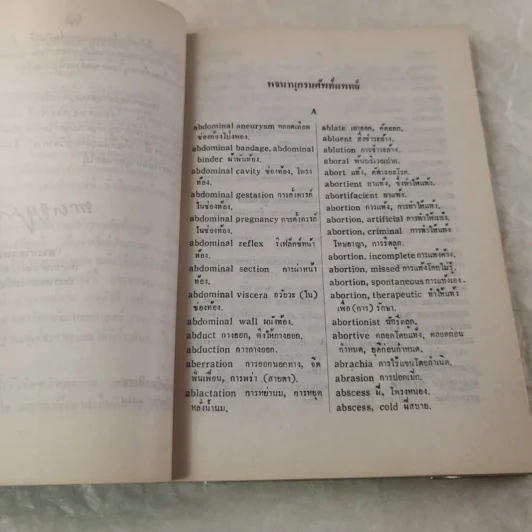 พจนานุกรมศัพท์แพทย์
A
abdominal aneurysm หลอดเลือด
ช่องท้องโป่งพอง.
abdominal bandage, abdominal
binder ผ้าพันท้อง.
abdominal cavity ช่องท้อง, โพรง
ท้อง.
abdominal gestation การตั้งครรภ์
ในช่องท้อง.
abdominal pregnancy การตั้งครรภ์
ในช่องท้อง.
abdominal reflex รีเฟล็กซ์หน้า
ท้อง.
abdominal section การผ่าหน้า
ท้อง.
abdominal viscera อวัยวะ (ใน)
ช่องท้อง.
abdominal wall ผนังท้อง.
abduct กางออก, ดึงให้กางออก.
abduction การกางออก.
aberration การออกนอกทาง, จิต
ฟั่นเฟือน, การพร่า (สายตา).
ablactation การหย่านม, การหยุด
หลั่งน้ำนม.
ablate เอาออก, ตัดออก.
abluent สิ่งชำระล้าง.
ablution การชำระล้าง.
aboral พ้นบริเวณปาก.
abort แท้ง, ตัดรอนโรค.
abortient ยาแท้ง, ซึ่งทำให้แท้ง.
abortifacient ยาแท้ง.
abortion การแท้ง, การทำให้แท้ง.
abortion, artificial การทำให้แท้ง.
abortion, criminal การทำให้แท้ง
โทษอาญา, การรีดลูก.
abortion, incomplete การแท้งค้าง.
abortion, missed การแท้งโดยไม่รู้.
abortion, spontaneous การแท้งเอง.
abortion, therapeutic ทำให้แท้ง
เพื่อ (การ) รักษา.
abortionist นักรีดลูก.
abortive คลอดโดยแท้ง, คลอดก่อน
กำหนด, ยุติก่อนกำหนด.
abrachia การไร้แขนโดยกำเนิด.
abrasion การปอกเปิก.
abscess ฝี, โพรงหนอง.
abscess, cold ฝีสบาย.